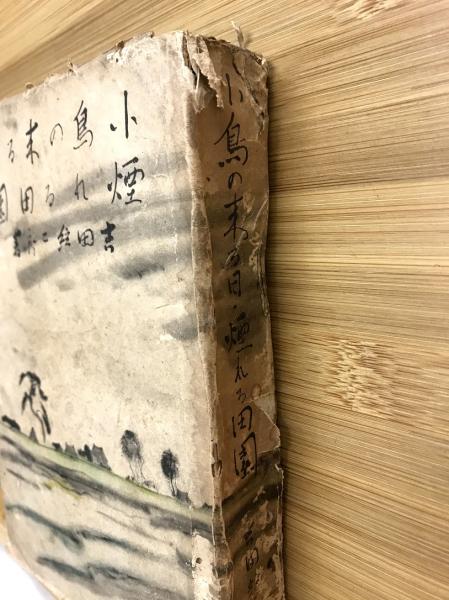 小鳥の来る
煙れる田園
吉田絃二郎著
小鳥の来る日・煙れる田園 吉田